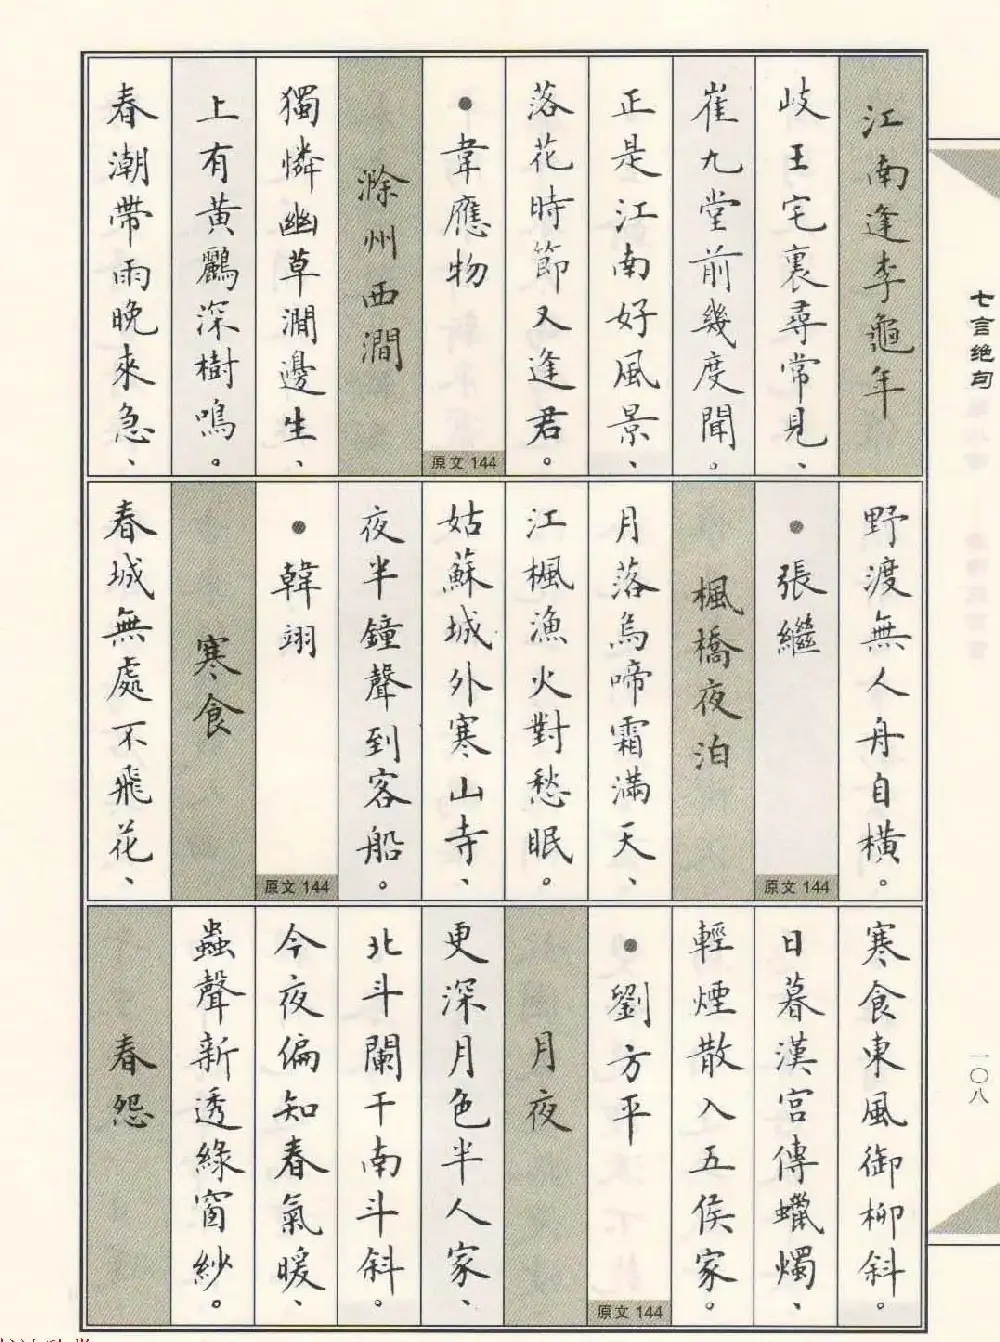 江南逢李龜年
岐王宅裏尋常見、
崔九堂前幾度聞。
正是江南好風景、
落花時節又逢君。
•韋應物
原文 144
滁州西澗
獨憐幽草澗邊生、
上有黃鸝深樹鳴。
春潮帶雨晚來急、
野渡無人舟自橫。
•張繼
原文 144
楓橋夜泊
月落烏啼霜滿天、
江楓漁火對愁眠。
姑蘇城外寒山寺、
夜半鐘聲到客船。
•韓翃
原文 144
寒食
春城無處不飛花、
寒食東風御柳斜。
日暮漢宮傳蠟燭、
輕煙散入五侯家。
•劉方平
原文 144
月夜
更深月色半人家、
北斗闌干南斗斜。
今夜偏知春氣暖、
蟲聲新透綠窗紗。
春怨
七言绝句
一〇八